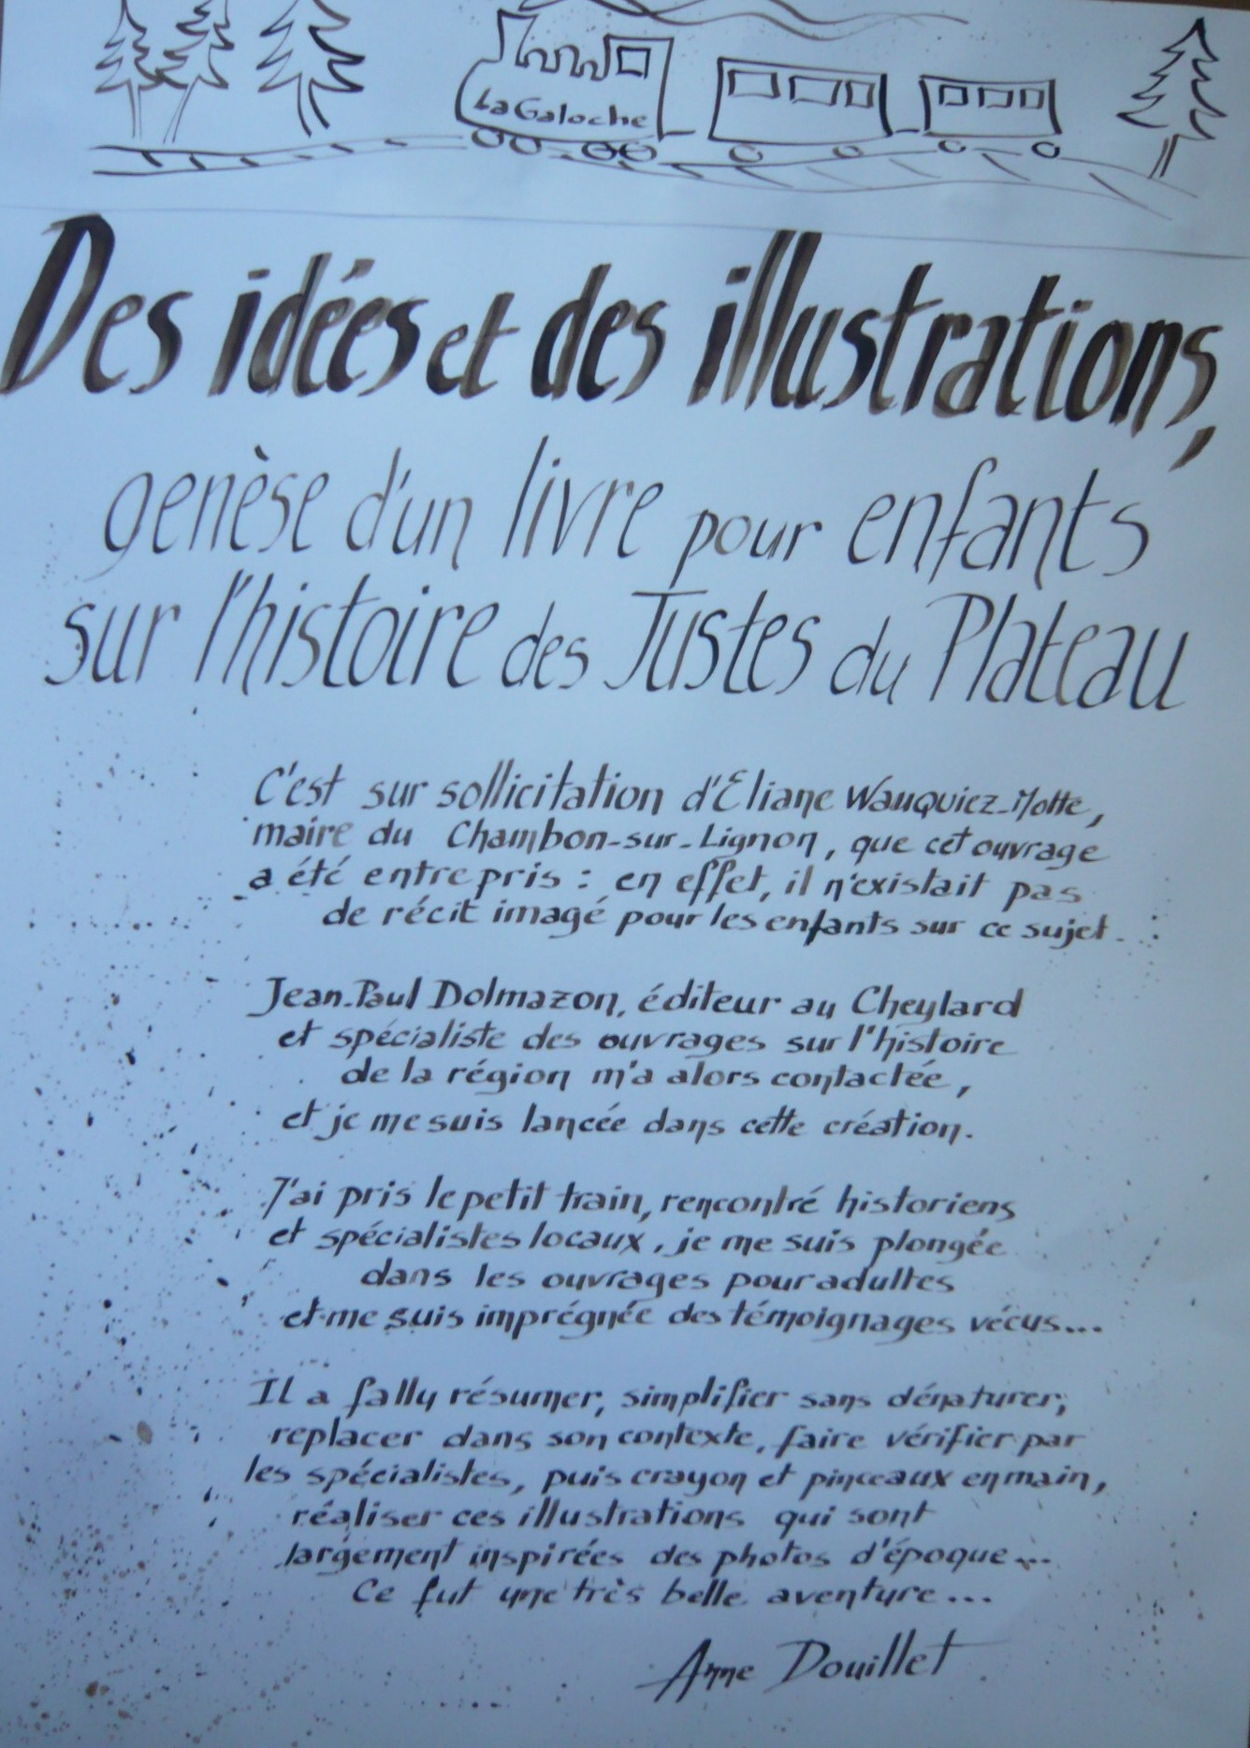 La Galoche
Des idées et des illustrations,
genèse d'un livre pour enfants
sur l'histoire des Justes du Plateau
C'est sur sollicitation d'Eliane Wauquiez-Motte,
maire du Chambon-sur-Lignon, que cet ouvrage
a été entrepris : en effet, il n'existait pas
de récit imagé pour les enfants sur ce sujet.
Jean-Paul Dolmazon, éditeur au Cheylard
et spécialiste des ouvrages sur l'histoire
de la région m'a alors contactée,
et je me suis lancée dans cette création.
J'ai pris le petit train, rencontré historiens
et spécialistes locaux, je me suis plongée
dans les ouvrages pour adultes
et me suis imprégnée des témoignages vécus...
Il a fallu résumer, simplifier sans dénaturer,
replacer dans son contexte, faire vérifier par
les spécialistes, puis crayon et pinceaux en main,
réaliser ces illustrations qui sont
largement inspirées des photos d'époque...
Ce fut une très belle aventure...
Anne Douillet